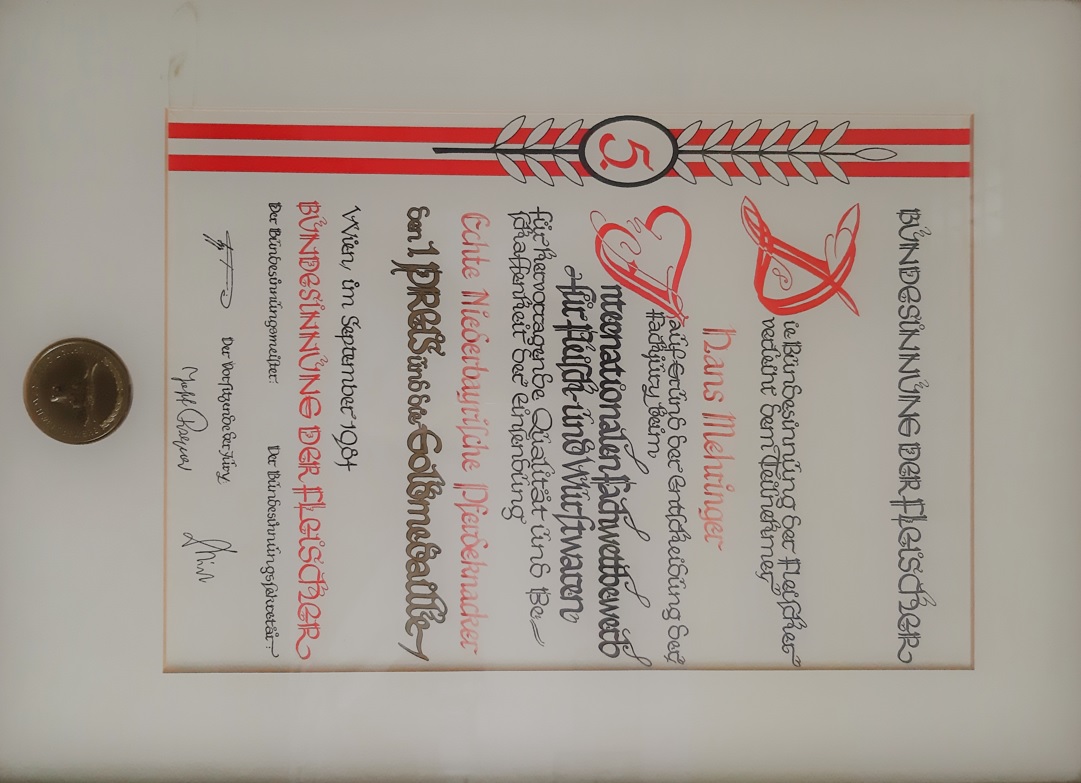 BUNDESINNUNG DER FLEISCHER
5.
Die Bundesinnung der Fleischer
verleiht dem Teilnehmer
Hans Mehringer
auf Grund der Entscheidung der
Fachjury beim
Internationalen Fachwettbewerb
für Fleisch- und Wurstwaren
für hervorragende Qualität und Be=
schaffenheit der Einsendung
Echte Niederbayrische Pferdeknacker
den 1. PREIS und die Goldmedaille
Wien, im September 1984
BUNDESINNUNG DER FLEISCHER
Der Bundesinnungsmeister: Der Bundesinnungssekretär:
Der Vorsitzende der Jury